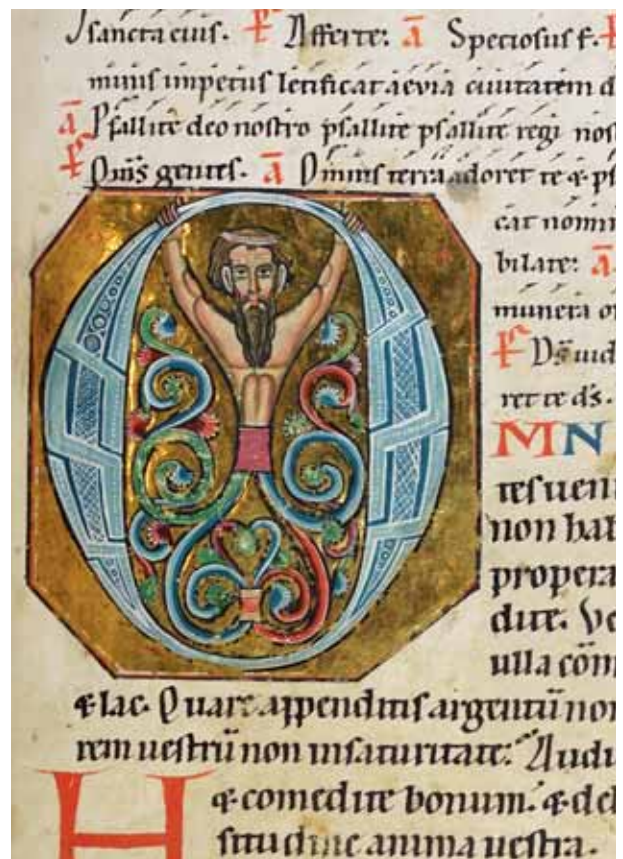 sancta eius. Afferte: a Speciosus f.
minis impetus letificat aevia ciuitatem d
a Psallite deo nostro psallite psallite regi nos
Omnis terra adoret te & ps
cat nomin
bilate: a
munera o
ret te ds.
O MN
tes ueni
non hab
propera
dite. Ve
ulla com
& lac. Quare appenditis argentū non
rem uestrū non in saturitate: Audi
H & comedite bonum. & del
situdine anima uestra.